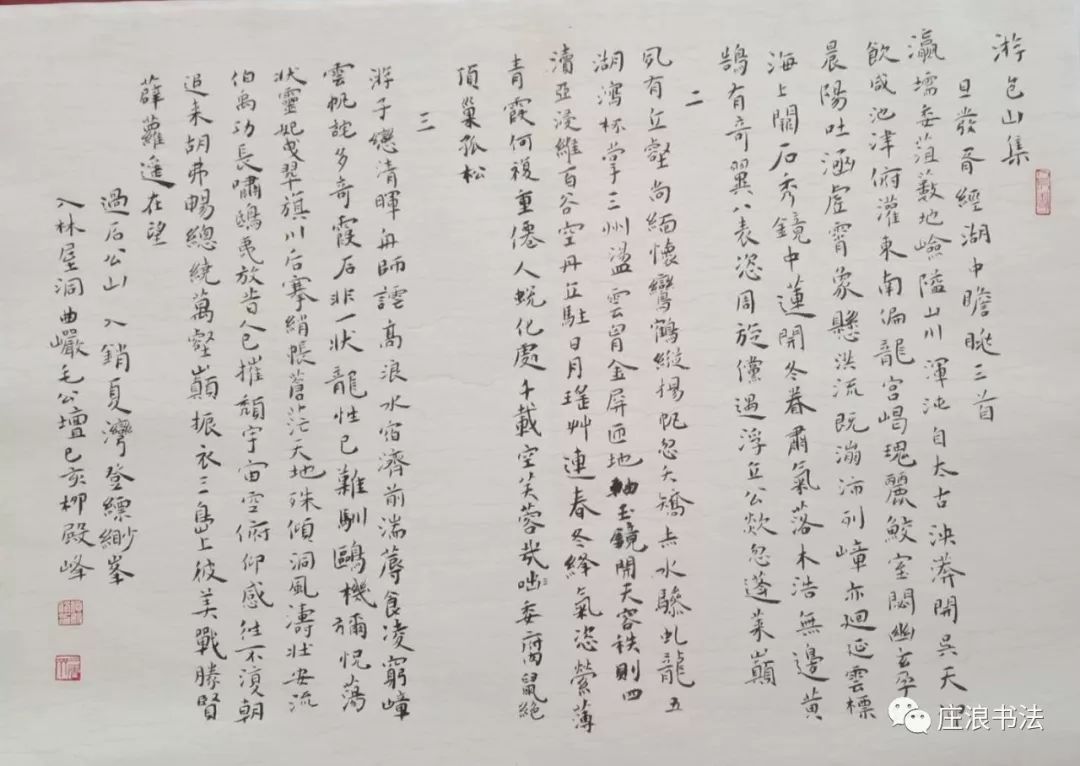 游包山集
旦發胥經湖中瞻眺三首
瀛壖委菹薮地嶮隘山川渾沌自太古泱漭開吳天早
飲咸池津俯灌東南偏龍宮唱瑰麗鮫室閟幽玄孕
晨陽吐涵虛霄象懸洪流既漰沛列嶂亦廻延雲標
海上闢石秀鏡中蓮開冬眷肅氣落木浩無邊黄
鵠有奇翼八表恣周旋儻遇浮丘公欻忽蓬萊巔
二
夙有丘壑尚緬懷鸞鶴縱揚帆忽夭矯点水驂虬龍五
湖瀉杯掌三州盪雲胷金屏匝地軸玉鏡開天容秩則四
瀆亞浸維百谷空丹丘駐日月瑤艸連春冬絳氣恣縈薄
青霞何複重僊人蛻化處千載空芙蓉哉咄委腐鼠絶
頂巢孤松
三
游子戀清暉舟師謹高浪水宿濟前湍蓐食凌窮嶂
雲帆詫多奇霞石非一狀龍性已難馴鷗機彌悅蕩
狀靈妃曵翠旗川后搴絹帳蒼茫天地殊傾洞風濤壮安流
伯禹功長嘯鴟夷放昔人已摧頹宇宙空俯仰感往不湏朝
追来胡弗暢總繞萬壑巔振衣三島上彼美戰勝賢
薜蘿遥在望
過石公山 入銷夏灣登縹緲峯
入林屋洞曲巖毛公壇己亥柳殿峰
庄浪书法